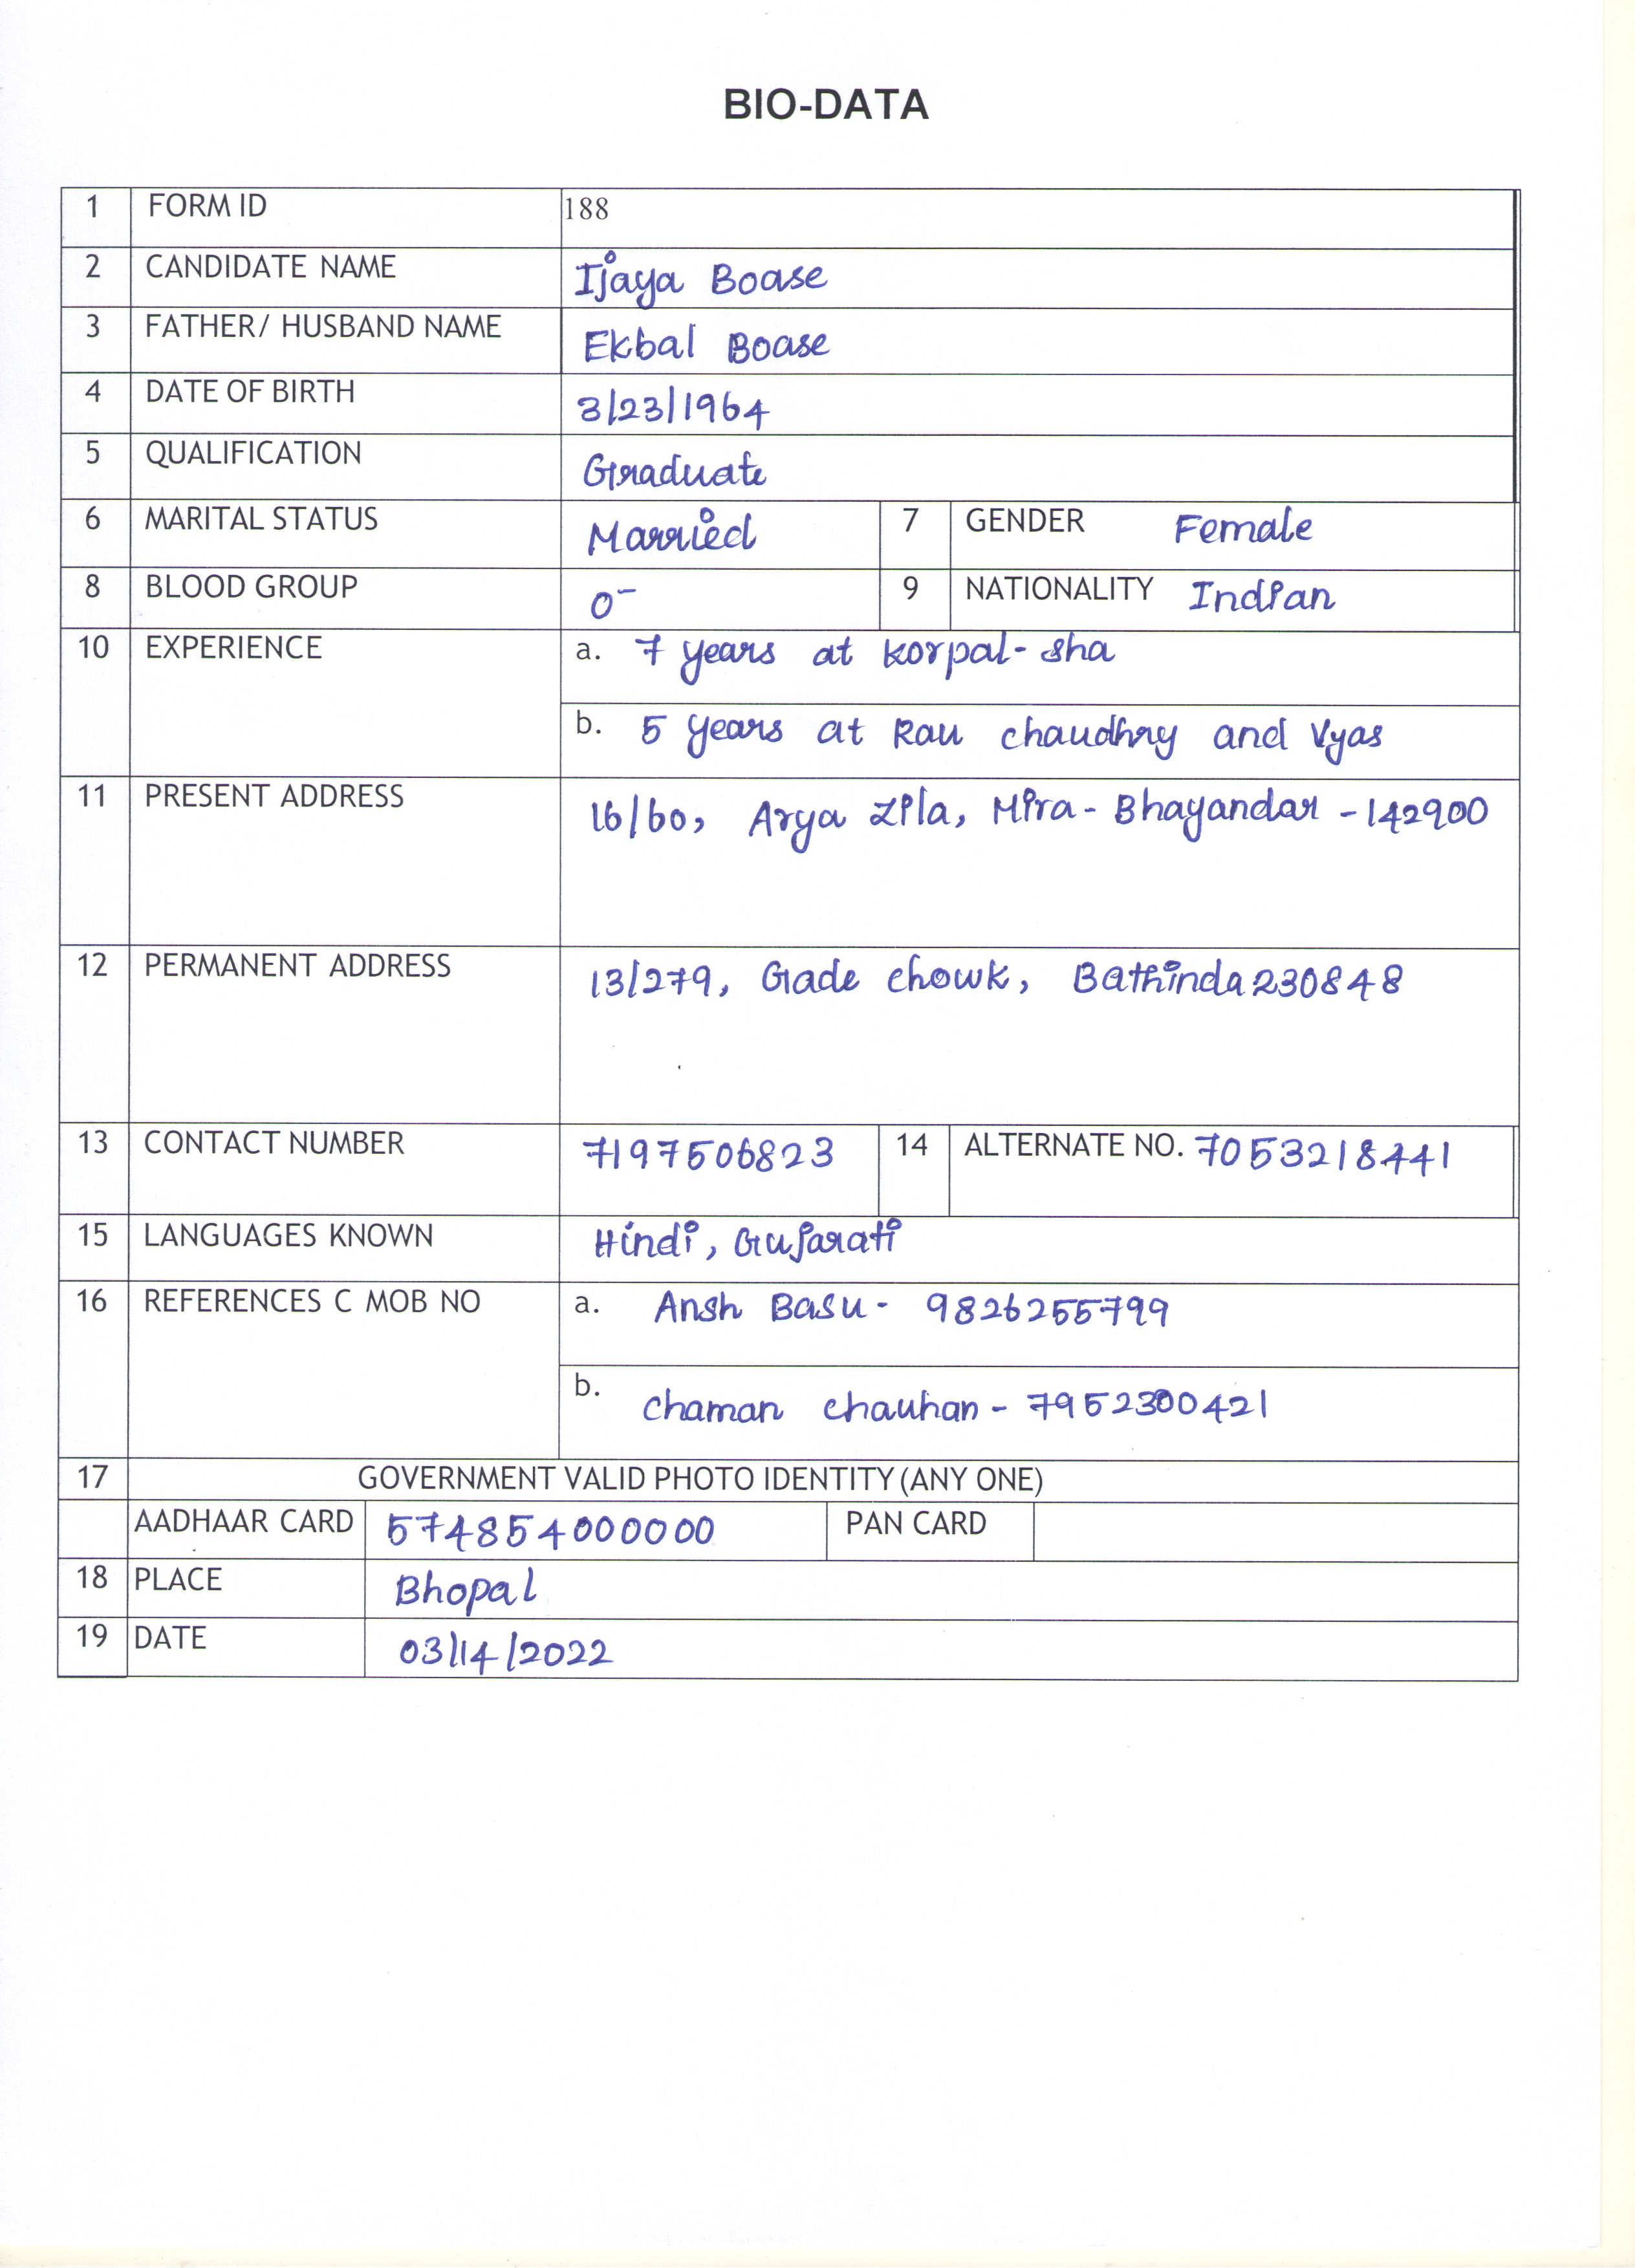 BIO-DATA
1 FORM ID 188
2 CANDIDATE NAME Ijaya Boase
3 FATHER/ HUSBAND NAME Ekbal Boase
4 DATE OF BIRTH 3/23/1964
5 QUALIFICATION Graduate
6 MARITAL STATUS Married 7 GENDER Female
8 BLOOD GROUP O- 9 NATIONALITY Indian
10 EXPERIENCE a. 7 years at Korpal-sha
b. 5 years at Rau chaudhry and Vyas
11 PRESENT ADDRESS 16/60, Arya Zila, Mira-Bhayandar -142900
12 PERMANENT ADDRESS 13/279, Gade chowk, Bathinda 230848
13 CONTACT NUMBER 7197506823 14 ALTERNATE NO. 7053218441
15 LANGUAGES KNOWN Hindi, Gujarati
16 REFERENCES C MOB NO a. Ansh Basu- 9826255799
b. chaman chauhan - 7952300421
17 GOVERNMENT VALID PHOTO IDENTITY (ANY ONE)
AADHAAR CARD 574854000000 PAN CARD
18 PLACE Bhopal
19 DATE 03/14/2022